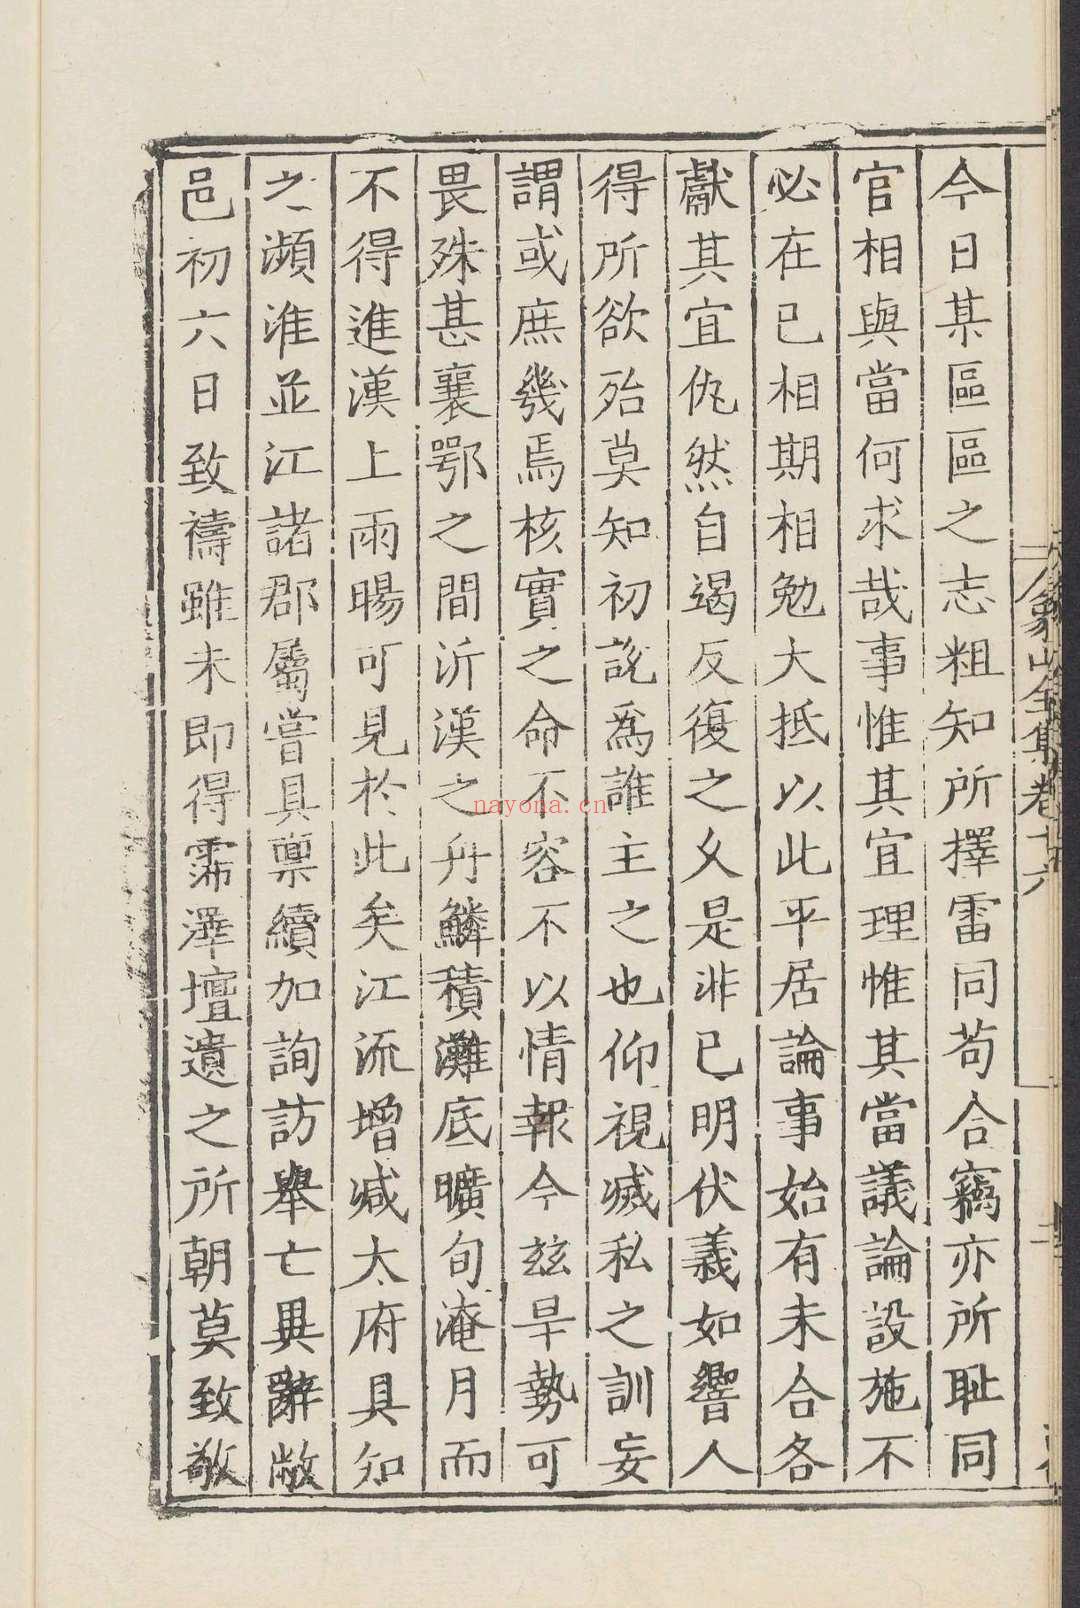 今日某區區之志粗知所擇雷同苟合竊亦所恥同
官相與當何求哉事惟其宜理惟其當議論設施不
必在已相期相勉大抵以此平居論事始有未合各
獻其宜侃然自竭反復之久是非已明伏義如響人
得所欲殆莫知初說爲誰主之也仰視臧私之訓妄
謂或庶幾焉核實之命不容不以情報今茲旱勢可
畏殊甚襄鄂之間沂漢之舟鱗積灘底曠旬淹月而
不得進漢上雨暘可見於此矣江流增減太府具知
之瀕淮並江諸郡屬嘗具稟續加詢訪舉亡異辭敝
邑初六日致禱雖未即得霈澤壇遺之所朝莫致敬
象山全集卷十六
nayona.cn